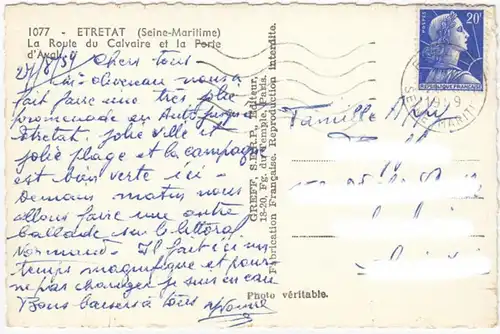 1077 - ETRETAT (Seine-Maritime)
La Route du Calvaire et la Porte
d'Aval
27/8/59 Chers tous
nous a
fait faire une très jolie
promenade en Auto jusqu'à
Etretat. jolie ville et
jolie plage et la campagne
est bien verte ici -
Demain matin nous
allons faire une autre
ballade sur le littoral
Normand. Il fait ici un
temps magnifique et pour
ne pas changer je suis en eau
Bons baisers à tous Yvonne
GREFF, S.E.R.P., Editeur,
18-20, Fg. du Temple, Paris.
Fabrication Française. Reproduction Interdite.
Photo véritable.
POSTES
20F
REPUBLIQUE FRANÇAISE
Famille